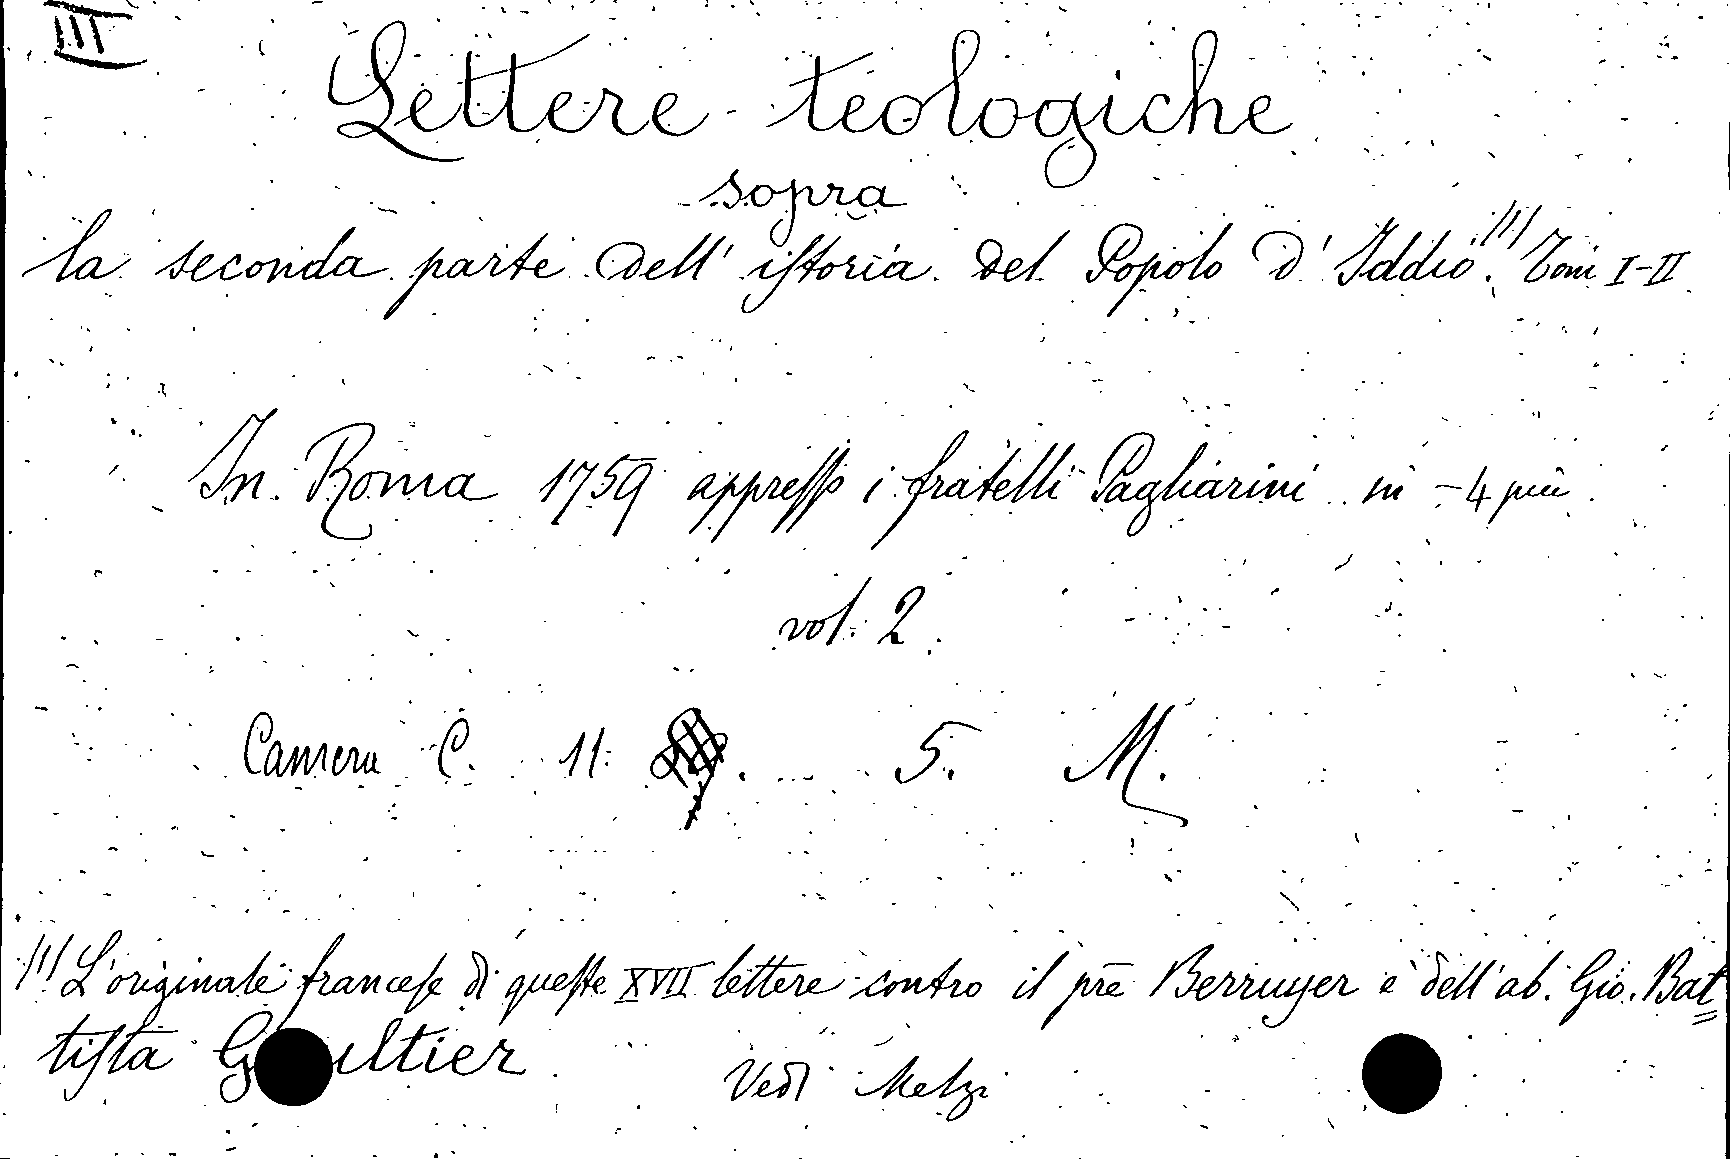 III
Lettere teologiche
sopra
la seconda parte dell' istoria del Popolo d' Iddio. (1) Tomi I-II
In Roma 1759 appresso i fratelli Pagliarini in - 4 piu
vol. 2.
Camera C. 11. 5. M.
(1) L'originale francese di queste XVII lettere contro il pre Berruyer è dell'ab. Gio. Bat=
tista G ultier
Vedi Melzi